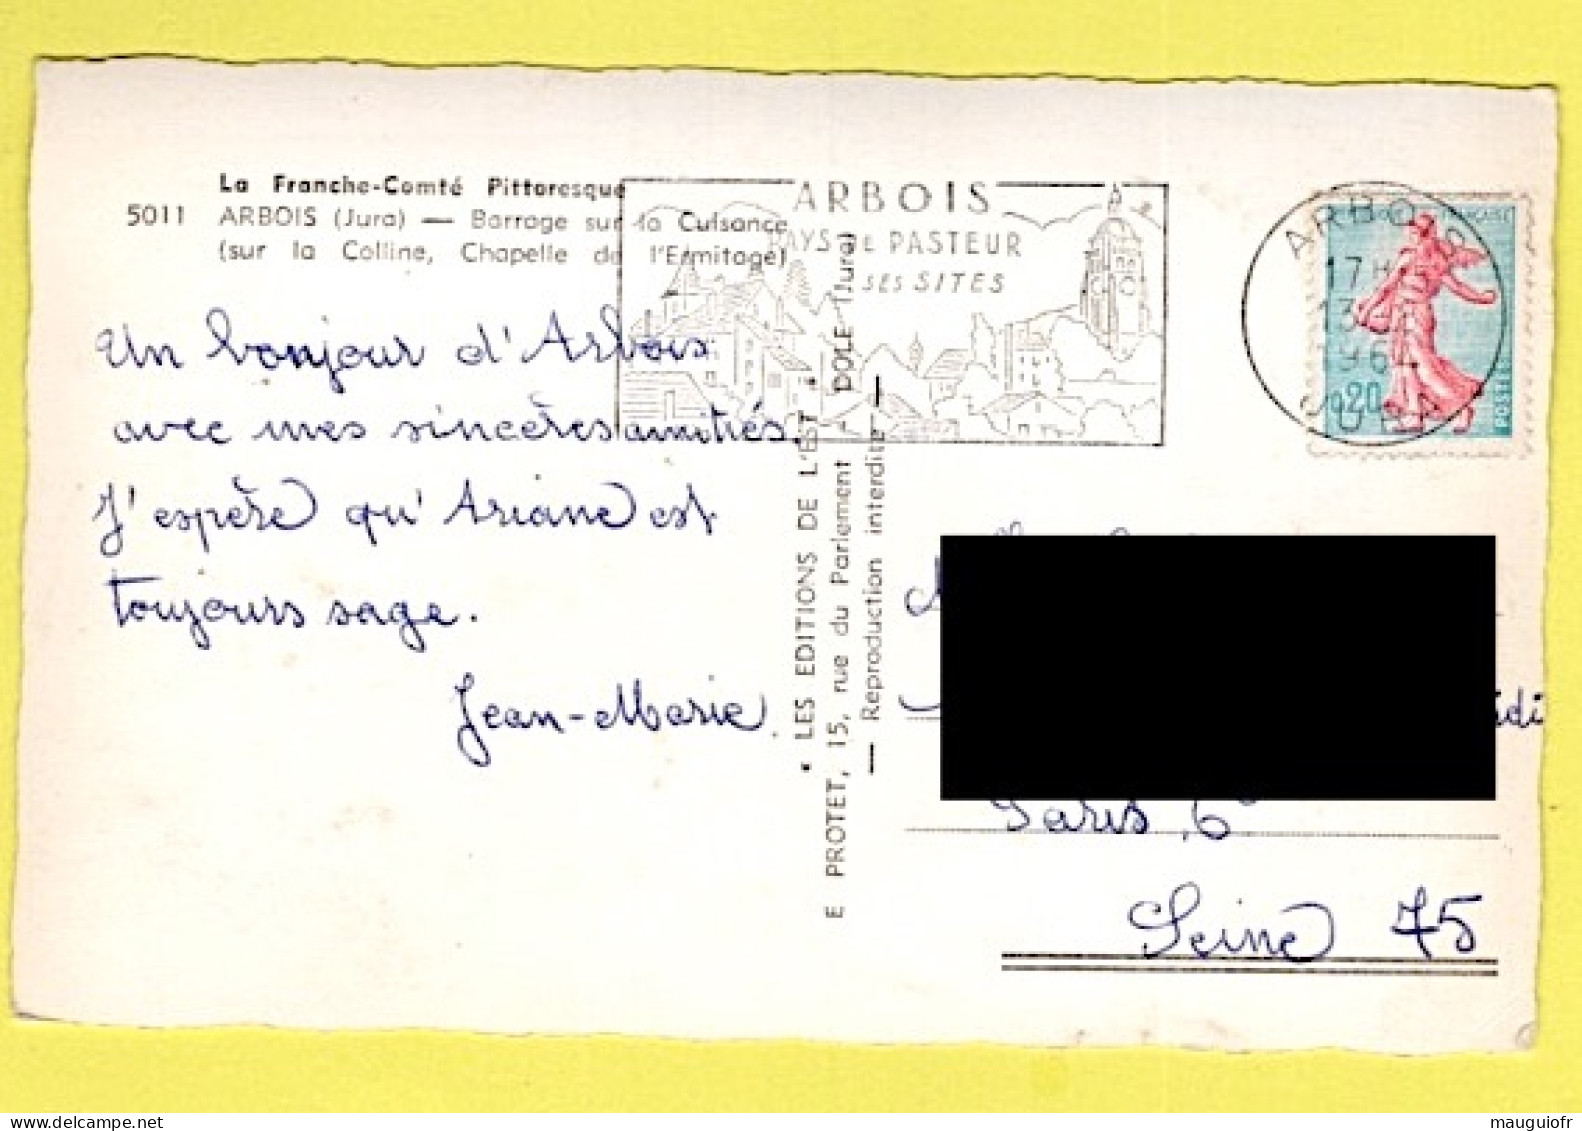 La Franche-Comté Pittoresque
5011 ARBOIS (Jura) — Barrage sur la Cuisance
(sur la Colline, Chapelle de l'Ermitage)
Un bonjour d'Arbois
avec mes sincères amitiés.
J'espère qu'Ariane est
toujours sage.
Jean-Marie.
ARBOIS
PAYS DE PASTEUR
SES SITES
• LES EDITIONS DE L'EST •
E PROTET, 15, rue du Parlement DOLE (Jura)
— Reproduction interdite —
ARBOIS
17H
13
JURA
FRANÇAISE
0,20
POSTES
Paris 6e
Seine 75
mauguiofr